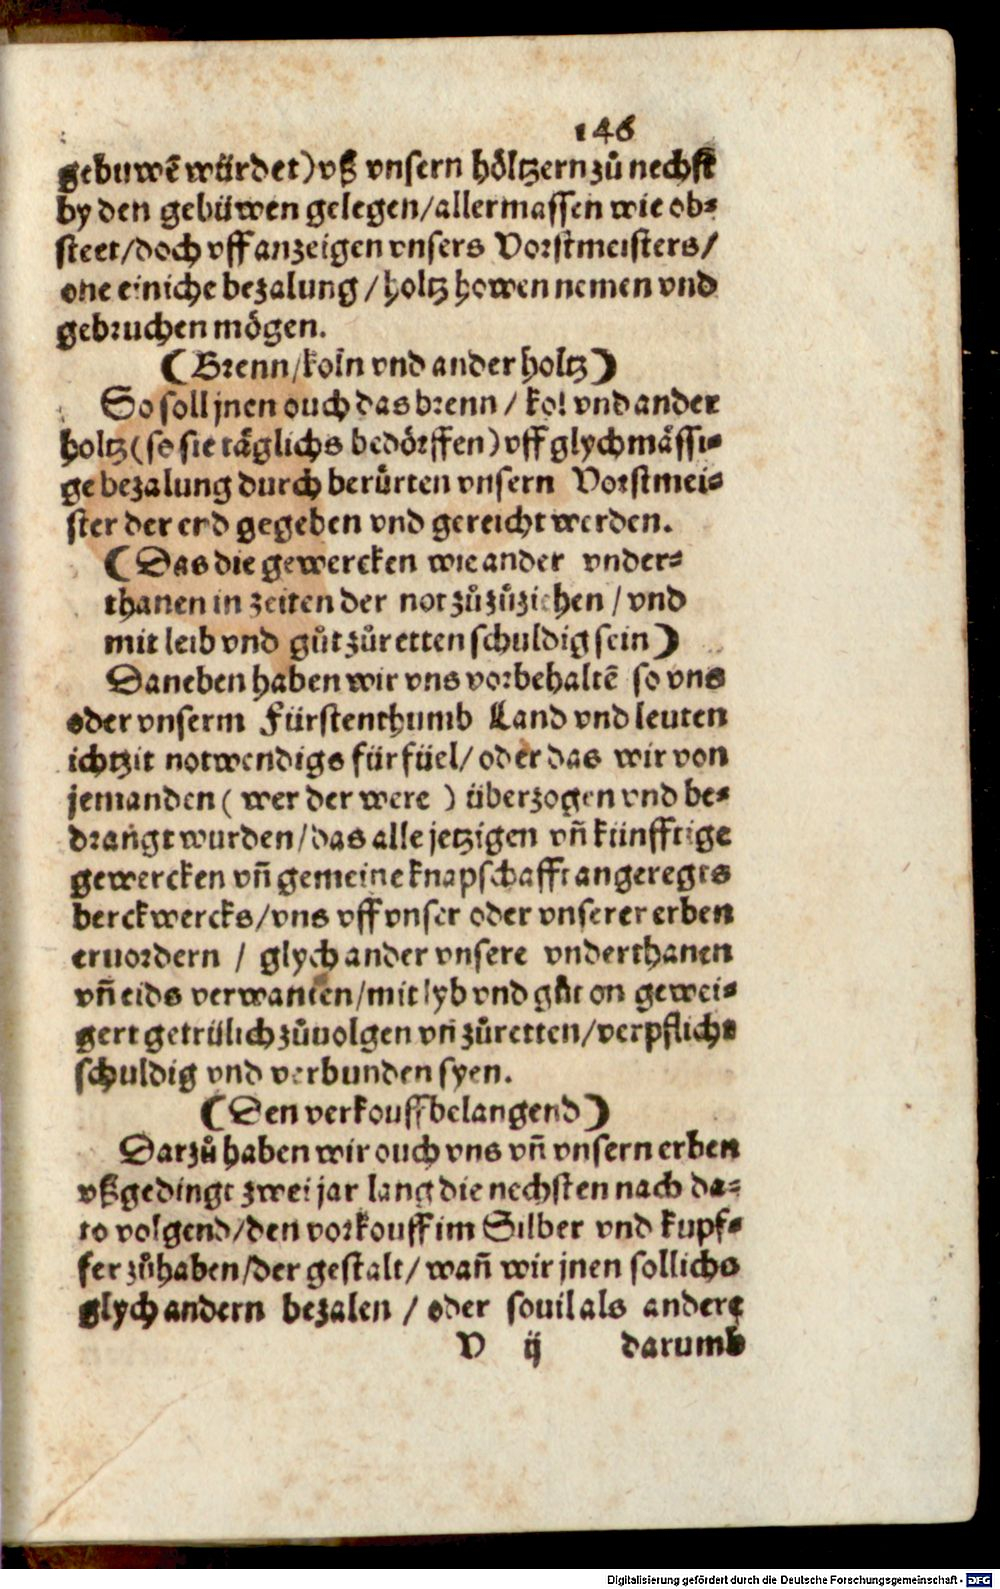 146
gebuwē würdet) vß vnsern höltzern zů nechst
by den gebüwen gelegen/allermassen wie ob⸗
steet/doch vff anzeigen vnsers Vorstmeisters/
one einiche bezalung/holtz howen nemen vnd
gebruchen mögen.
(Brenn/koln vnd ander holtz)
So soll jnen ouch das brenn/kol vnd ander
holtz (so sie täglichs bedörffen) vff glychmässi⸗
ge bezalung durch berürten vnsern Vorstmei⸗
ster der erd gegeben vnd gereicht werden.
(Das die gewercken wie ander vnder⸗
thanen in zeiten der not zůzůziehen/vnd
mit leib vnd gůt zůretten schuldig sein)
Daneben haben wir vns vorbehaltē so vns
oder vnserm Fürstenthumb Land vnd leuten
ichtzit notwendigs für füel/oder das wir von
jemanden (wer der were) überzogen vnd be⸗
drangt wurden/das alle jetzigen vñ künfftige
gewercken vñ gemeine knapschafft angeregts
berckwercks/vns vff vnser oder vnserer erben
eruordern/glych ander vnsere vnderthanen
vñ eids verwanten/mit lyb vnd gůt on gewei⸗
gert getrülich zůuolgen vñ zůretten/verpflicht
schuldig vnd verbunden syen.
(Den verkouff belangend)
Darzů haben wir ouch vns vñ vnsern erben
vßgedingt zwei jar lang die nechsten nach da⸗
to volgend/den vorkouff im Silber vnd kupf⸗
fer zůhaben/der gestalt/wañ wir jnen sollichs
glych andern bezalen/oder souil als andere
V ij darumb
Digitalisierung gefördert durch die Deutsche Forschungsgemeinschaft - DFG